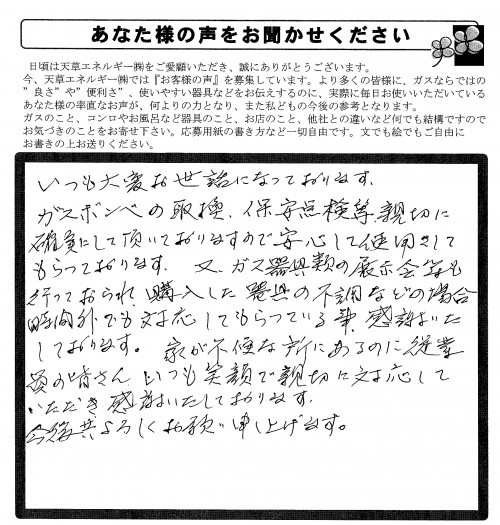 あなた様の声をお聞かせください
日頃は天草エネルギー㈱をご愛顧いただき、誠にありがとうございます。
今、天草エネルギー㈱では『お客様の声』を募集しています。より多くの皆様に、ガスならではの
”良さ”や”便利さ”、使いやすい器具などをお伝えするのに、実際に毎日お使いいただいている
あなた様の率直なお声が、何よりの力となり、また私どもの今後の参考となります。
ガスのこと、コンロやお風呂など器具のこと、お店のこと、他社との違いなど何でも結構ですので
お気づきのことをお寄せ下さい。応募用紙の書き方など一切自由です。文でも絵でもご自由に
お書きの上お送りください。
いつも大変お世話になっております。
ガスボンベの取換、保安点検等親切に
確実にして頂いておりますので安心して使用させて
もらっております。又、ガス器具類の展示会等も
行っておられ、購入した器具の不調などの場合
時間外でも対応してもらっている事、感謝いた
しております。家が不便な所にあるのに従業
員の皆さん いつも笑顔で親切に対応して
いただき感謝いたしております。
今後共よろしくお願い申し上げます。